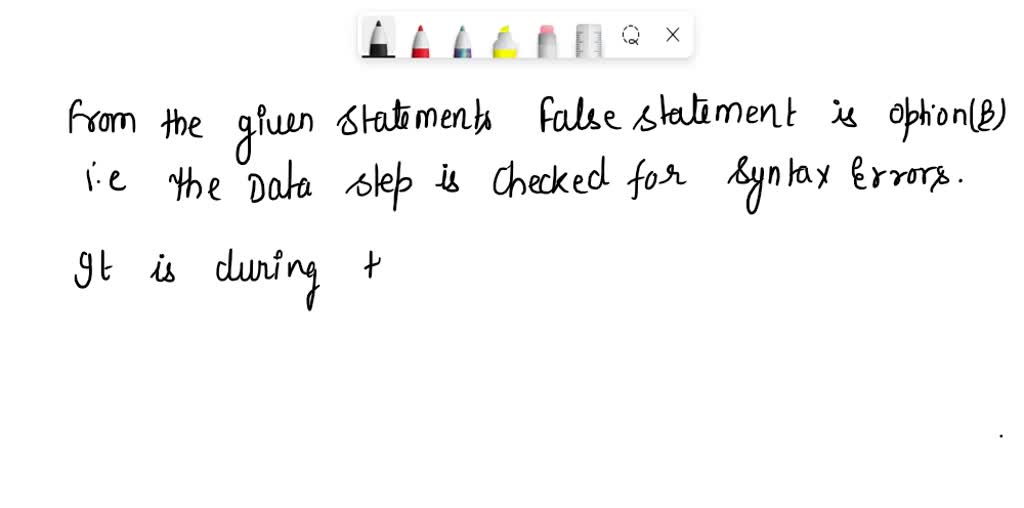 From the given statements False statement is option(B)
i.e the Data step is checked for Syntax Errors.
It is during t